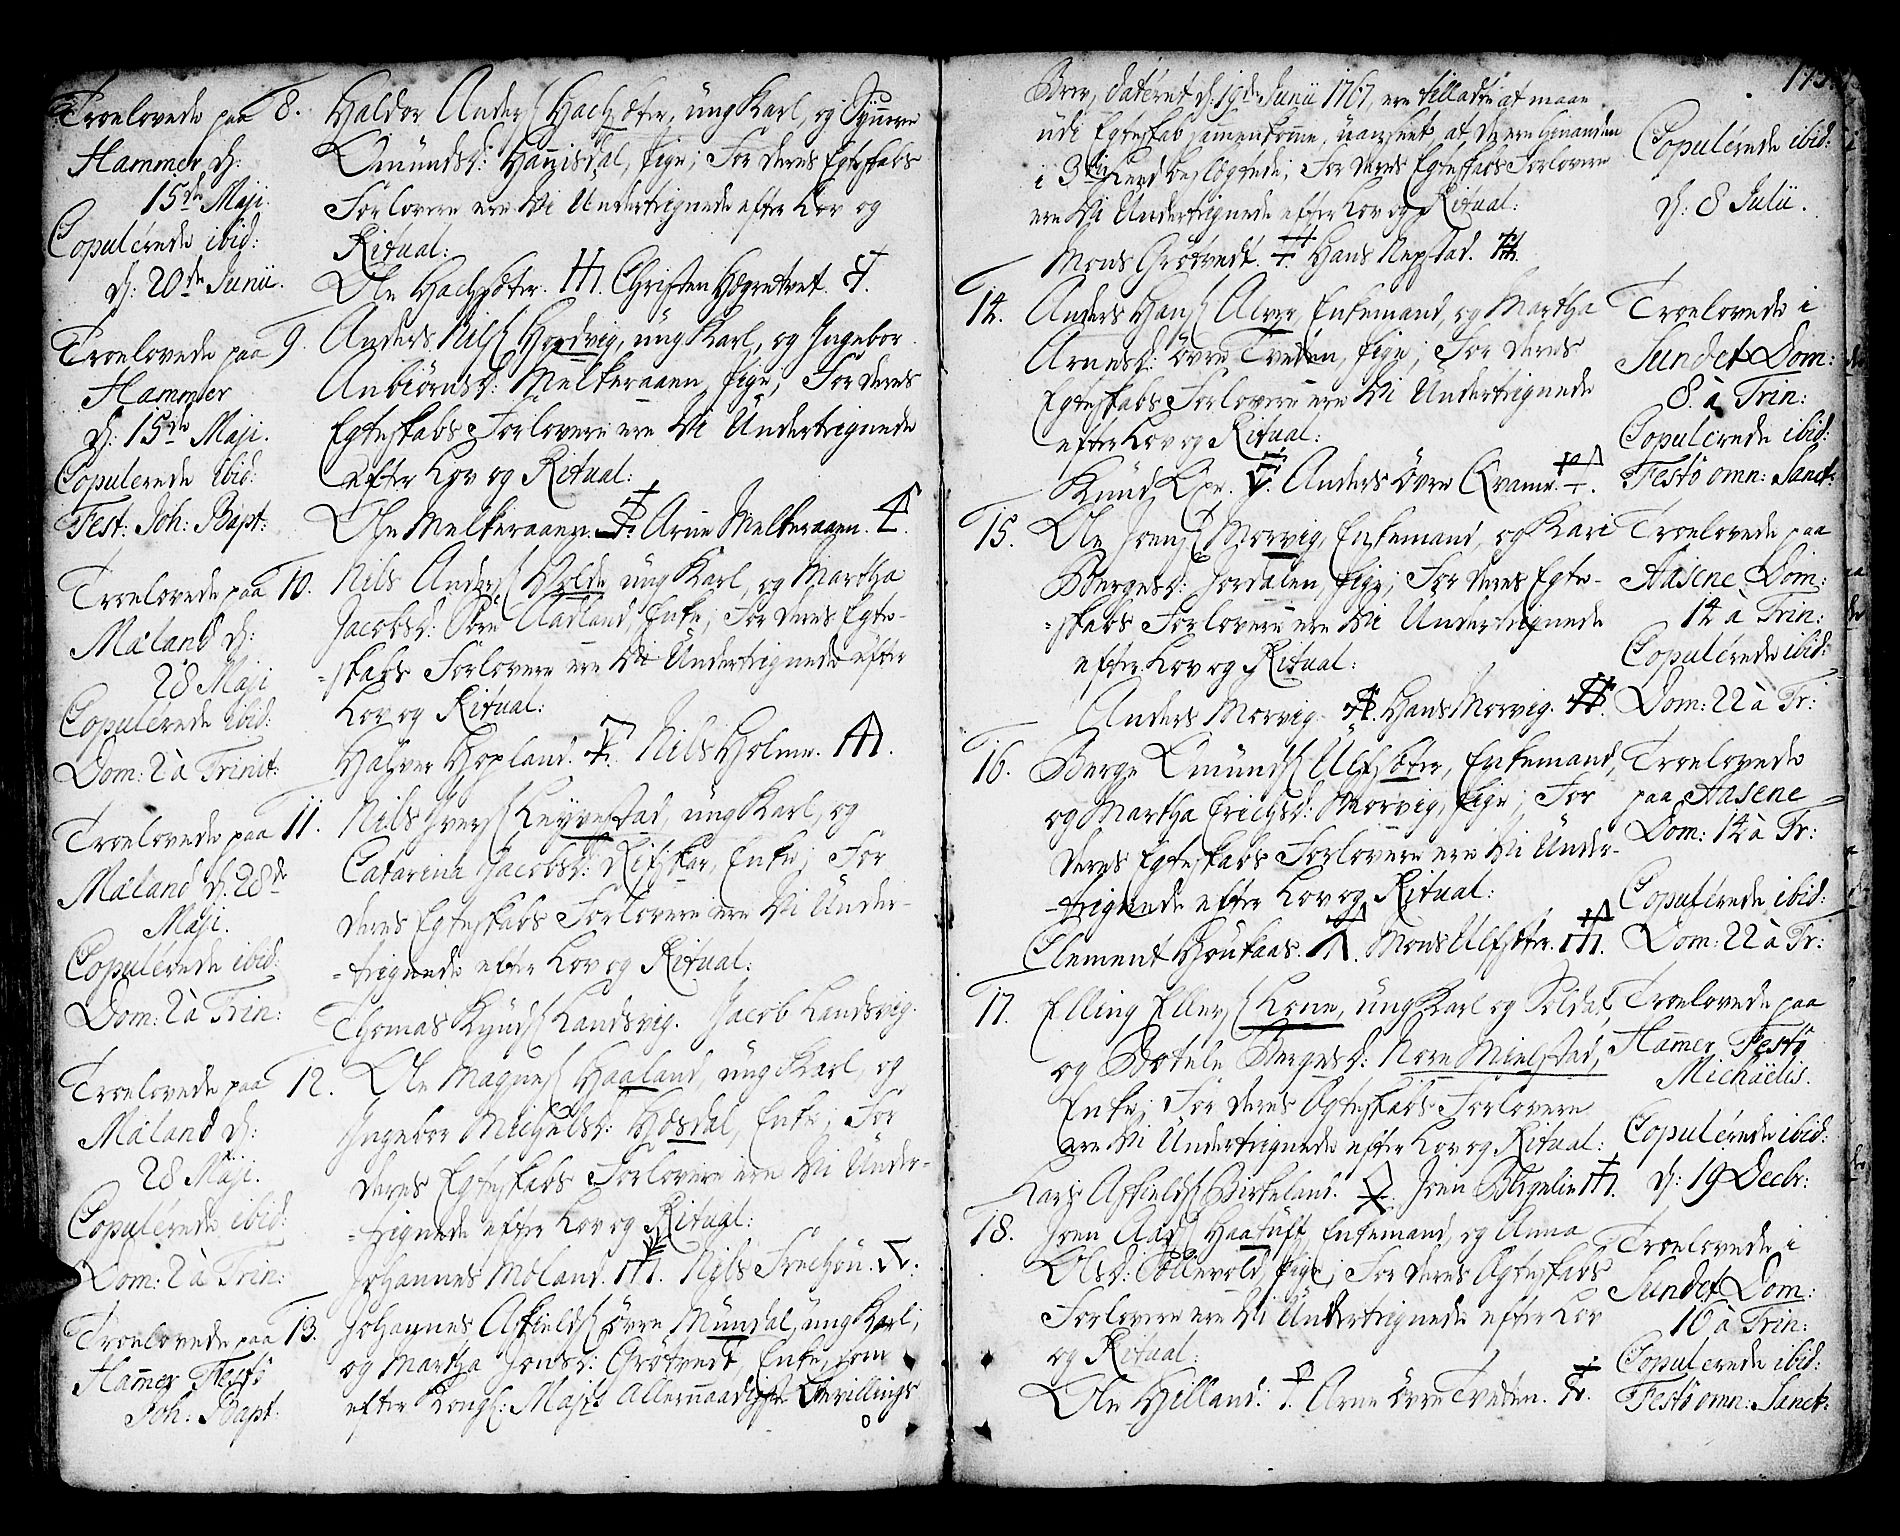 Troelovede paa 8.
Hammer d:
15de Maji.
Copulérede ibid:
d: 20de Junii.
Haldor Anders Hachsøter, ung Karl, og Synneve
Omundsd: Hannisdal, Pige; For deres Egteskabs
Forlovere ere Vi Undertegnede efter Lov og
Ritual:
Ole Hachsøter. Christen Høgretvet.
Troelovede paa 9.
Hammer
d: 15de Maji.
Copulerede ibid:
Fest: Joh: Bapt:
Anders Nils Hordvig, ung Karl, og Ingebor
Anbiørnsd: Melkeraaen, Pige; For deres
Egteskabs Forlovere ere Vi Undertegnede
efter Lov og Ritual:
Ole Melkeraaen. Arne Melkeraaen.
Troelovede paa 10.
Maland d:
28 Maji
Copulerede ibid:
Dom: 2 à Trinit:
Nils Anders Holde ung Karl, og Martha
Jacobsd: Aadland, Enke; For deres Egte-
-skabs Forlovere ere Vi Undertegnede efter
Lov og Ritual:
Halver Hopland. Nils Holme.
Troelovede paa 11.
Maland d: 28de
Maji.
Copulérede ibid:
Dom: 2 à Trin:
Nils Ivers Leyvestad, ung Karl, og
Catarina Jacobsd: Rifskar, Enke; For
deres Egteskabs Forlovere ere Vi Under-
-tegnede efter Lov og Ritual:
Thomas Knuds Landsvig. Jacob Landsvig.
Troelovede paa 12.
Maland d:
28 Maji.
Copulérede ibid:
Dom: 2 à Trin:
Ole Magnes Haaland, ung Karl, og
Ingebor Michelsd: Hosdal, Enke; For
deres Egteskabs Forlovere ere Vi Under-
-tegnede efter Lov og Ritual:
Johannes Moland. Nils
Troelovede paa 13.
Hamer Festo
Joh: Bapt:
Johannes Askields øvre Mundal, ung Karl,
og Martha Jonsd: Grøtvedt, Enke, som
efter Kongl: Majts Allernaadigste Bevillings
Brev, dateret d: 19de Junii 1767, ere tilladte at maae
udi Egteskab sammenkomme, uanseet at de ere hinanden
i 3die Leed beslegtede; For deres Egteskabs Forlovere
ere Vi Undertegnede efter Lov og Ritual:
Mons Grøtvedt. Hans Nepstad.
Copulérede ibid:
d: 8 Julii.
14. Anders Hans Alver, Enkemand, og Martha
Arnesd: øvre Tveden, Pige; For deres
Egteskabs Forlovere ere Vi Undertegnede
efter Lov og Ritual:
Knud Anders øvre Qvamme.
Troelovede i
Sundet Dom:
8. à Trin:
Copulérede ibid:
Festo omn: Sanct:
15. Ole Joens Morvig, Enkemand, og Kari
Bergesd: Jordalen, Pige; For deres Egte-
-skabs Forlovere ere Vi Undertegnede
efter Lov og Ritual:
Anders Morvig. Hans Morvig.
Troelovede paa
Aasene Dom:
14 à Trin:
Copulérede ibid:
Dom: 22 à Tr:
16. Berge Omunds Ulfsøter, Enkemand,
og Martha Erichsd: Morvig, Pige; For
deres Egteskabs Forlovere ere Vi Under-
-tegnede efter Lov og Ritual:
Clement Houkaas. Mons Ulfsøter.
Troelovede
paa Aasene
Dom: 14 à Tr:
Copulérede ibid:
Dom: 22 à Tr:
17. Elling Ellens Lone, ung Karl og Soldat,
og Botele Bergesd: Nore Mielstad,
Enke; For deres Egteskabs Forlovere
ere Vi Undertegnede efter Lov og Ritual:
Lars Askields Birkeland. Joen
Troelovede paa
Hamer Festo
Michaëlis.
Copulérede ibid:
d: 19 Decbr:
18. Joen Aads Haatuft Enkemand, og Anna
Olsd: Tollevold, Pige; For deres Egteskabs
Forlovere ere Vi Undertegnede efter Lov
og Ritual:
Ole Hilland: Arne øvre Tveden.
Troelovede i
Sundet Dom:
16 à Trin:
Copulerede ibid:
Festo omn: Sanct: